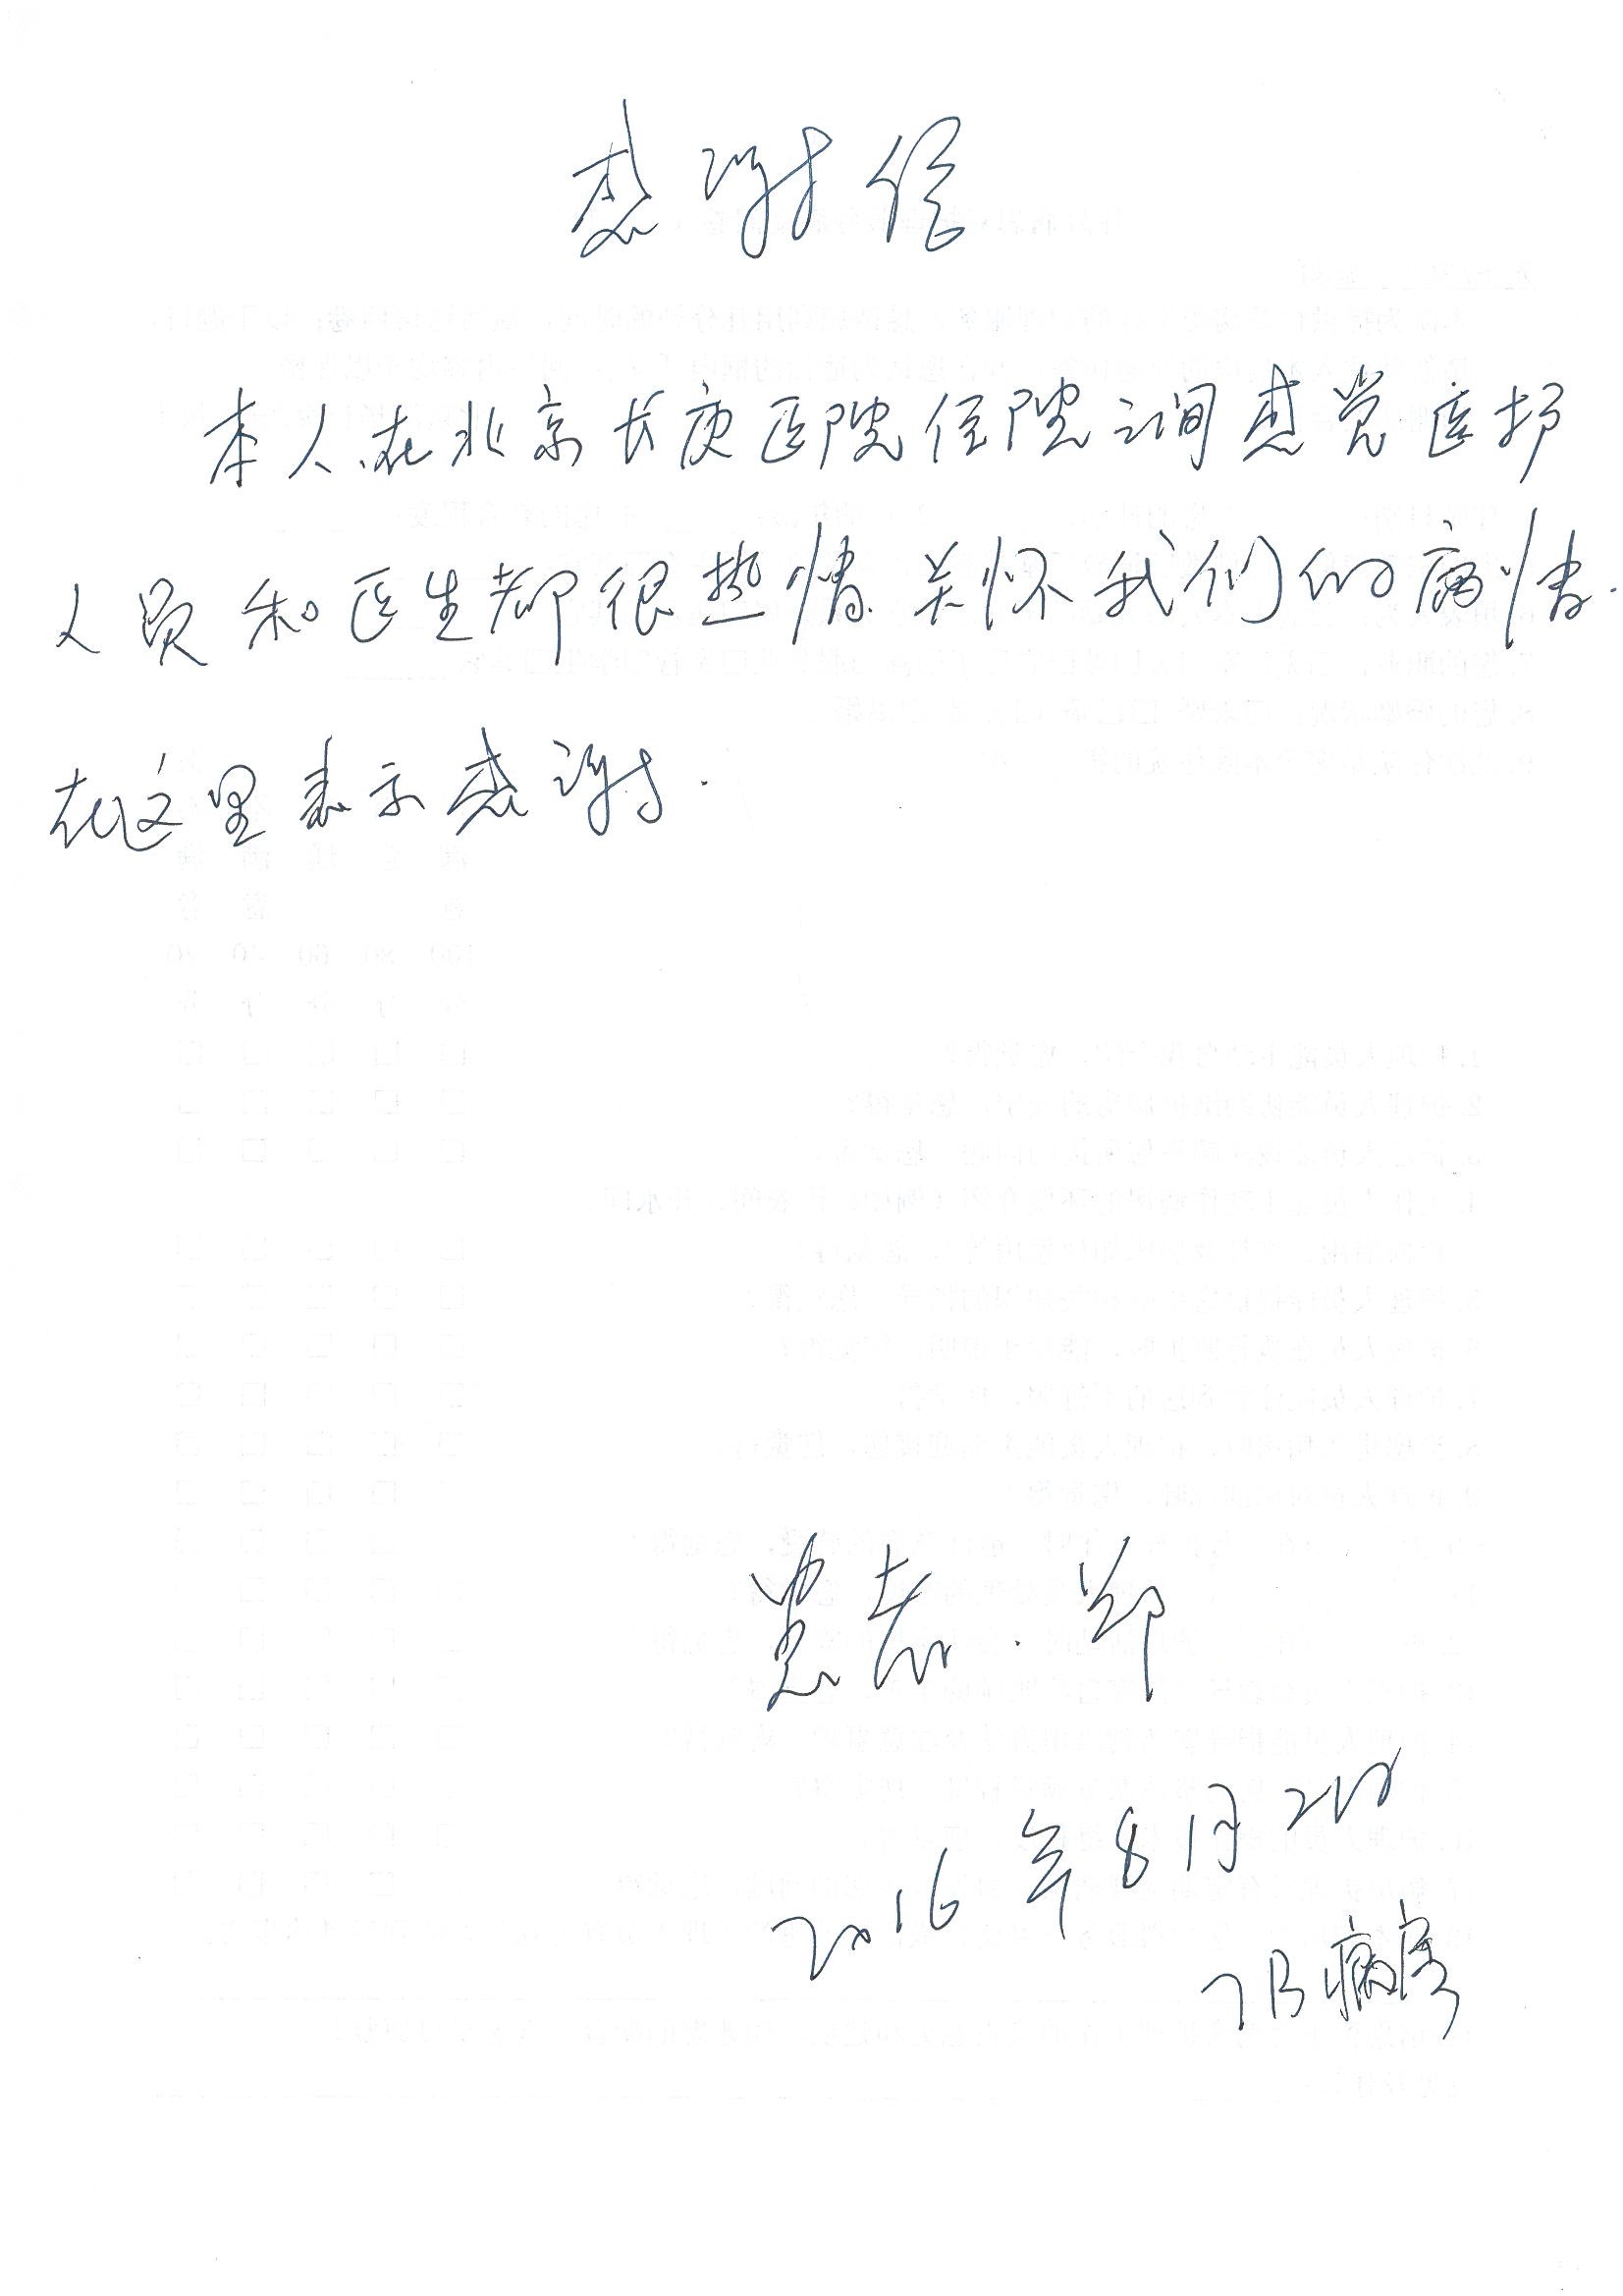 感谢信
本人在北京长庚医院住院之间感觉医护
人员和医生都很热情.关怀我们的病情.
在这里表示感谢.
患者.郑
2016年8月21日
7B病房